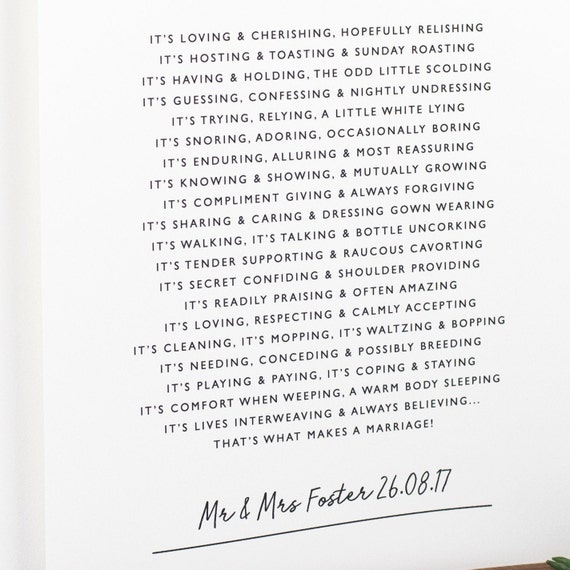 IT'S LOVING & CHERISHING, HOPEFULLY RELISHING
IT'S HOSTING & TOASTING & SUNDAY ROASTING
IT'S HAVING & HOLDING, THE ODD LITTLE SCOLDING
IT'S GUESSING, CONFESSING & NIGHTLY UNDRESSING
IT'S TRYING, RELYING, A LITTLE WHITE LYING
IT'S SNORING, ADORING, OCCASIONALLY BORING
IT'S ENDURING, ALLURING & MOST REASSURING
IT'S KNOWING & SHOWING, & MUTUALLY GROWING
IT'S COMPLIMENT GIVING & ALWAYS FORGIVING
IT'S SHARING & CARING & DRESSING GOWN WEARING
IT'S WALKING, IT'S TALKING & BOTTLE UNCORKING
IT'S TENDER SUPPORTING & RAUCOUS CAVORTING
IT'S SECRET CONFIDING & SHOULDER PROVIDING
IT'S READILY PRAISING & OFTEN AMAZING
IT'S LOVING, RESPECTING & CALMLY ACCEPTING
IT'S CLEANING, IT'S MOPPING, IT'S WALTZING & BOPPING
IT'S NEEDING, CONCEDING & POSSIBLY BREEDING
IT'S PLAYING & PAYING, IT'S COPING & STAYING
IT'S COMFORT WHEN WEEPING, A WARM BODY SLEEPING
IT'S LIVES INTERWEAVING & ALWAYS BELIEVING...
THAT'S WHAT MAKES A MARRIAGE!
Mr & Mrs Foster 26.08.17